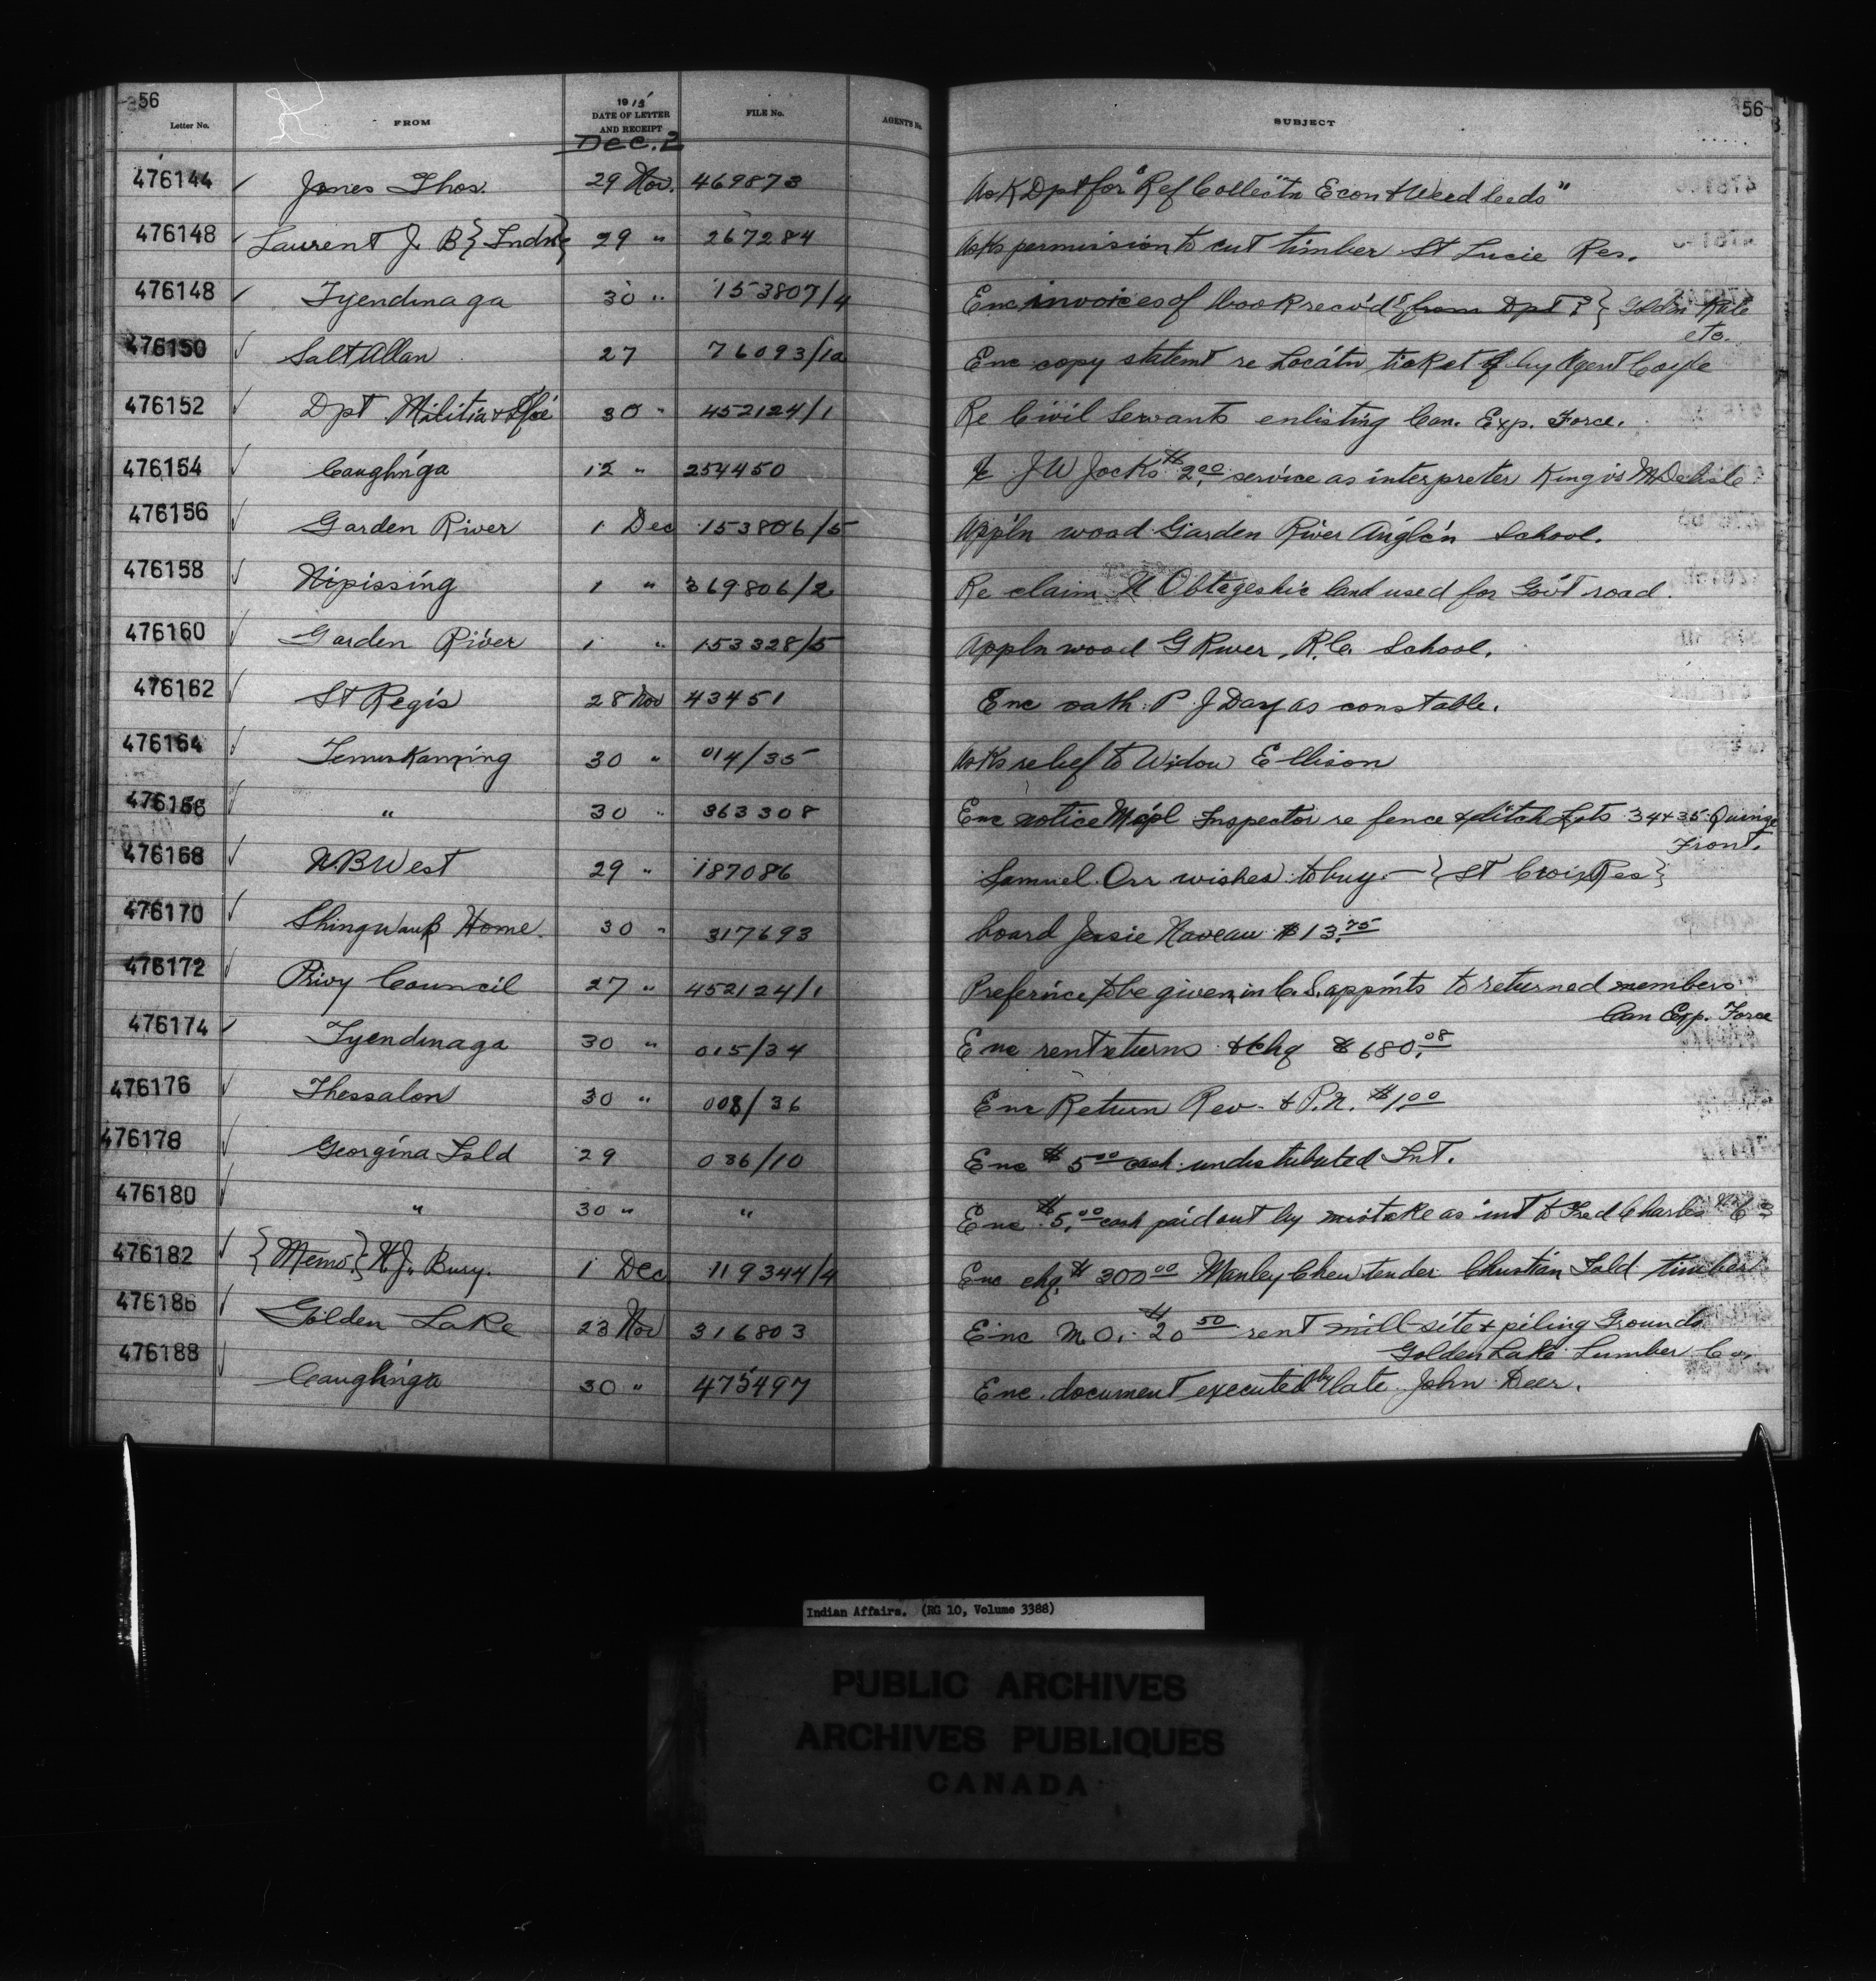 56
Letter No. FROM 1915 DATE OF LETTER AND RECEIPT FILE No. AGENT'S No. SUBJECT 56
Dec. 2
476144 ✓ Jones Thos. 29 Nov. 469873 Ask Dpt for "Ref Collect'n Econ & Weed seeds"
476148 ✓ Laurent J. B {Indn} 29 " 267284 Asks permission to cut timber St Lucie Res.
476148 ✓ Tyendinaga 30 " 153807/4 Enc invoices of book rec'd {from Dpt ?} Golden Rule
etc.
476150 ✓ Salt Allan 27 76093/1a Enc copy statemt re Locatn ticket by Agent Coyle
476152 ✓ Dpt Militia & Dfce 30 " 452124/1 Re Civil Servants enlisting Can. Exp. Force.
476154 ✓ Caughn'ga 12 " 254450 J W Jocks $2.00 service as interpreter King vs M Delisle
476156 ✓ Garden River 1 Dec 153806/5 Appln wood Garden River Anglc'n School.
476158 ✓ Nipissing 1 " 369806/2 Re claim land used for Gov't road.
476160 ✓ Garden River 1 " 153328/5 Appln wood G River R.C. School.
476162 ✓ St Regis 28 Nov 43451 Enc oath P. J Day as constable.
476164 ✓ Temiskaming 30 " 014/35 Asks relief to Widow Ellison
476166 ✓ " 30 " 363308 Enc notice Mcpl Inspector re fence & ditch Lots 34 & 35 Quinze
Front.
476168 ✓ N B West 29 " 187086 Samuel Orr wishes to buy - {St Croix Res}
476170 ✓ Shingwauk Home 30 " 317693 board Jessie Naveau $13.75
476172 ✓ Privy Council 27 " 452124/1 Preference to be given in C. S. appmts to returned members
Can Exp. Force
476174 ✓ Tyendinaga 30 " 015/34 Enc rent returns & chq $680.08
476176 ✓ Thessalon 30 " 008/36 Enc Return Rev. & P.N. $1.00
476178 ✓ Georgina Isld 29 036/10 Enc $5.00 cash undistributed Int.
476180 ✓ " 30 " " Enc $5.00 cash paid out by mistake as int to Fred Charles
476182 ✓ {Memo.} H. J. Bury. 1 Dec 119344/4 Enc chq. $300.00 Manley Chew tender Christian Isld timber
476186 ✓ Golden Lake 23 Nov 316803 Enc M O. $20.50 rent mill-site & piling Grounds
Golden Lake Lumber Co.
476188 ✓ Caughn'ga 30 " 475497 Enc. document executed by late John Deer.
Indian Affairs. (RG 10, Volume 3388)
PUBLIC ARCHIVES
ARCHIVES PUBLIQUES
CANADA